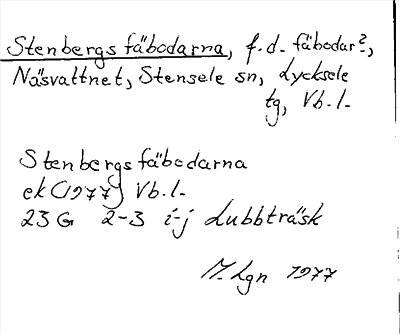 Stenbergs fäbodarna, f.d. fäbodar?,
Näsvattnet, Stensele sn, Lycksele
tg, Vb.l.
Stenbergsfäbodarna
ek (1977) Vb.l.
23G 2-3 i-j Lubbträsk
M.Lgn 1977